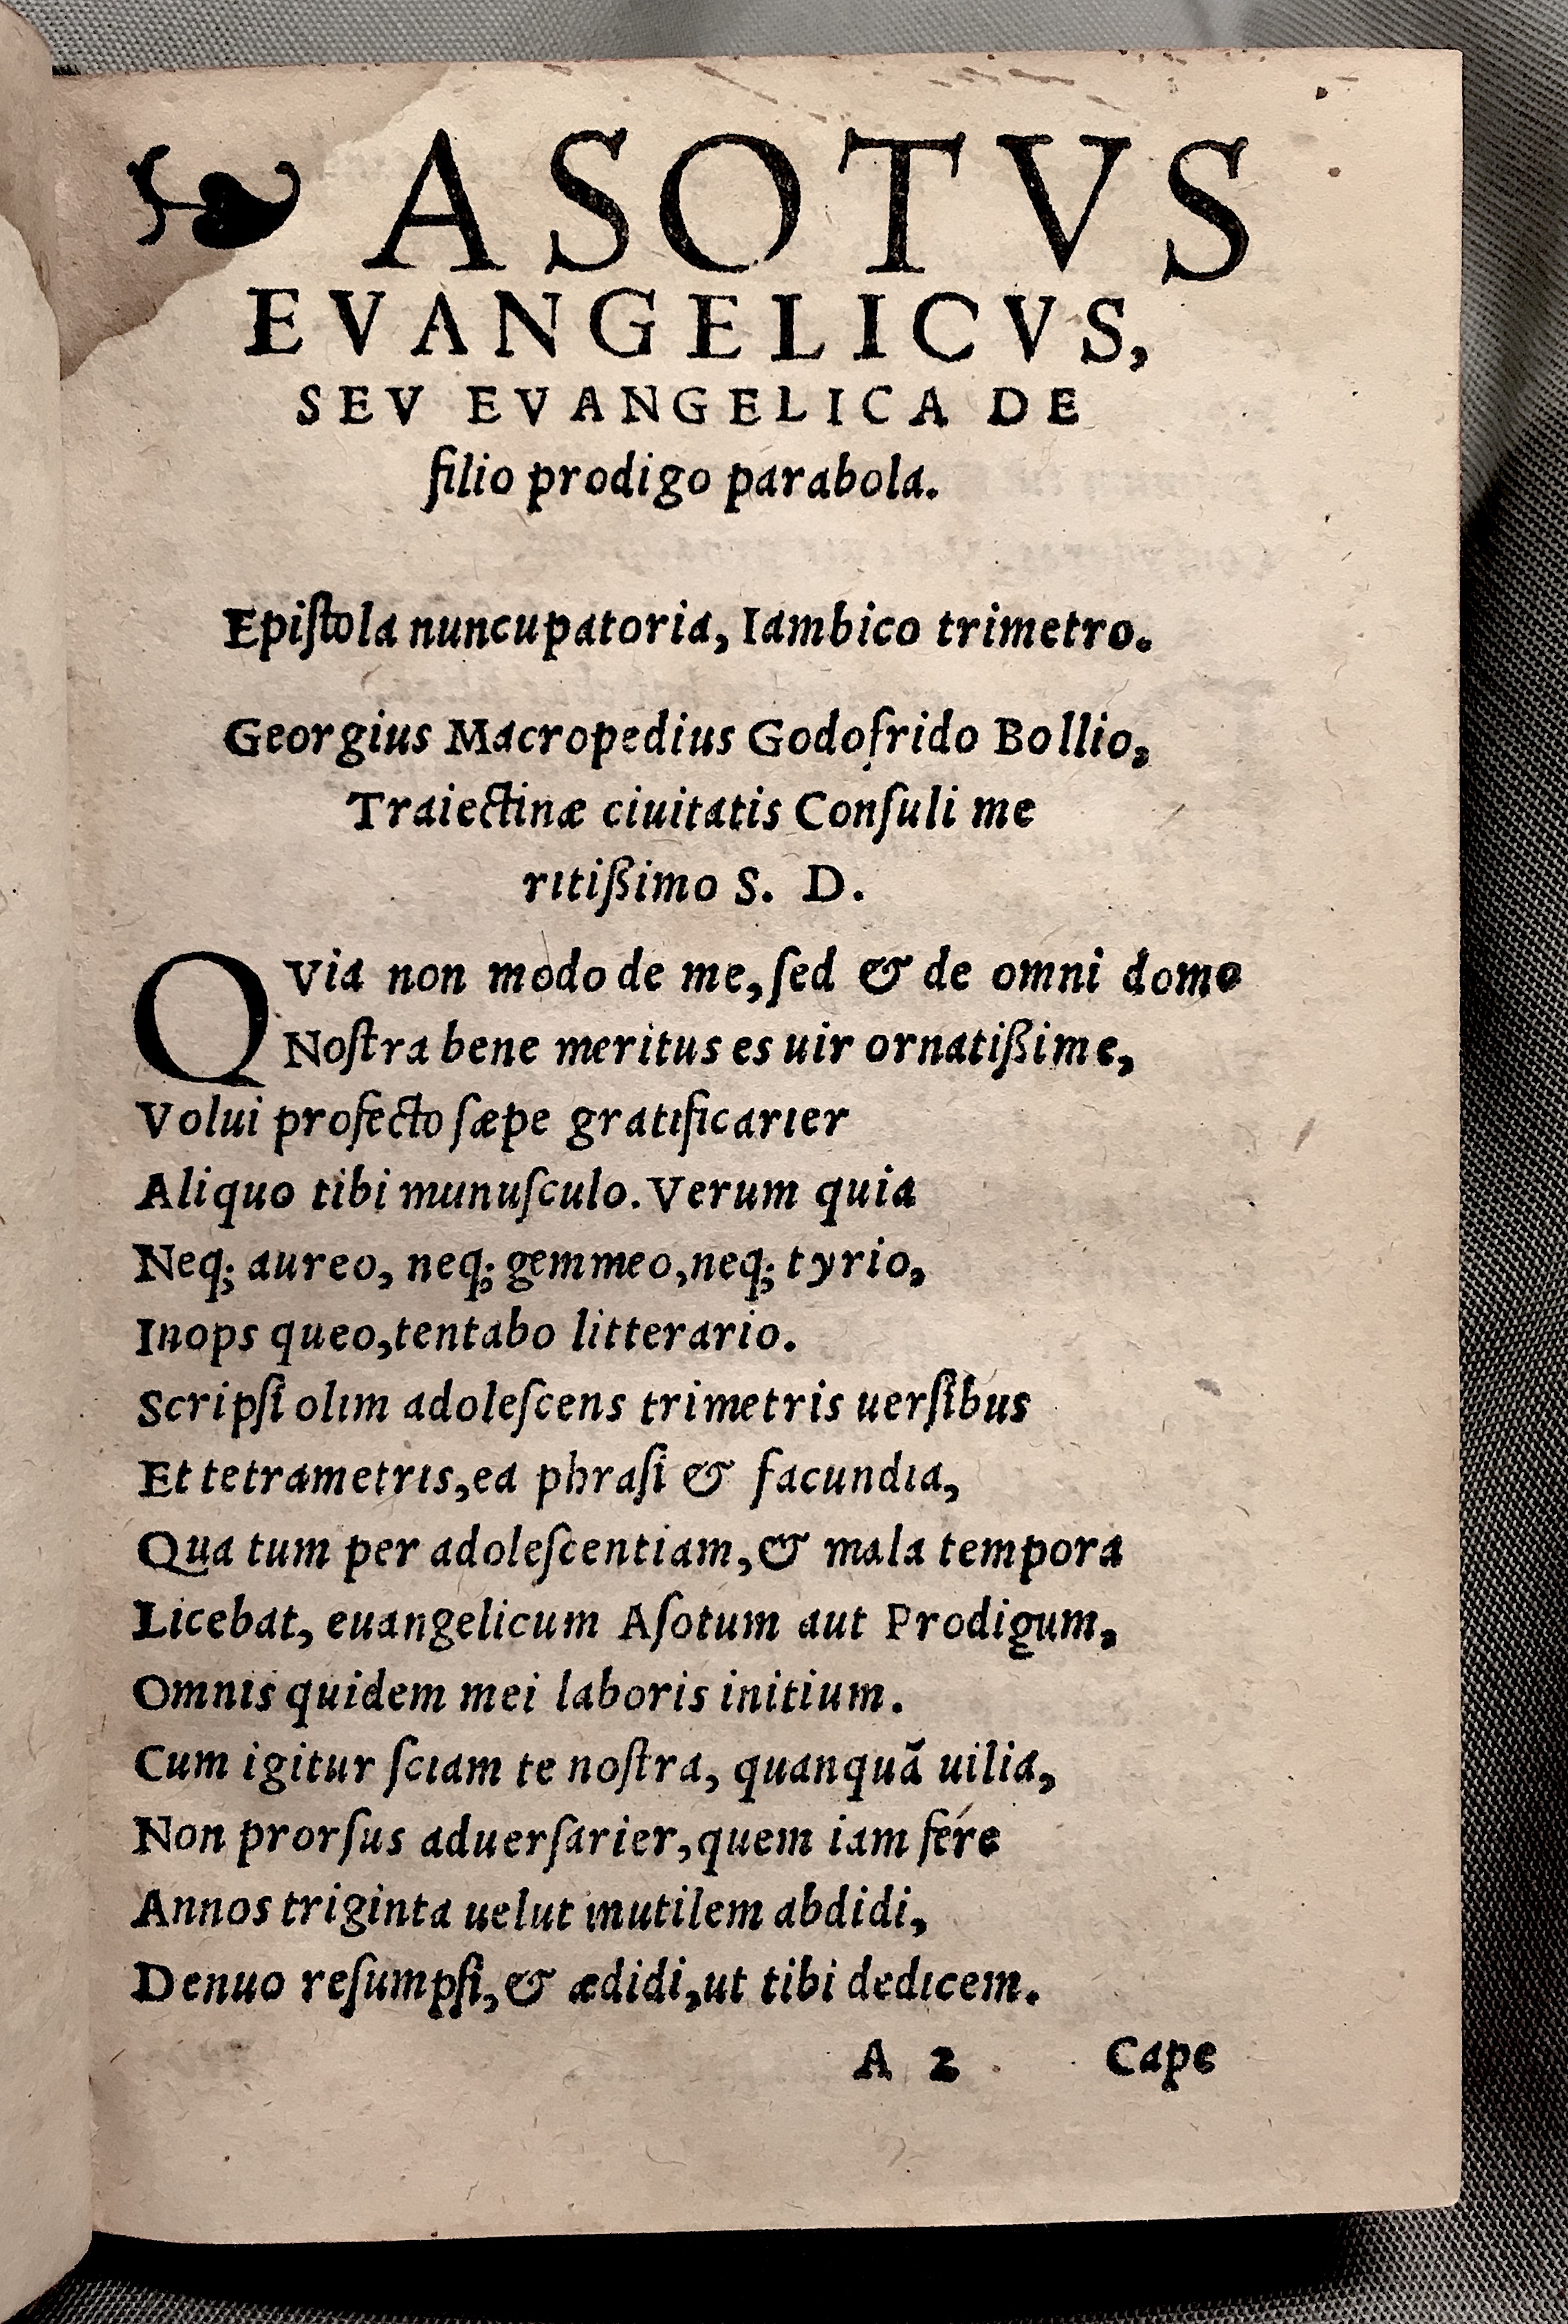 ❧ ASOTVS
EVANGELICVS,
SEV EVANGELICA DE
filio prodigo parabola.
Epiſtola nuncupatoria, Iambico trimetro.
Georgius Macropedius Godofrido Bollio,
Traiectinæ ciuitatis Conſuli me
ritißimo S. D.
QVia non modo de me, ſed & de omni domo
Noſtra bene meritus es uir ornatißime,
Volui profecto ſæpe gratificarier
Aliquo tibi munuſculo. Verum quia
Neq; aureo, neq; gemmeo, neq; tyrio,
Inops queo, tentabo litterario.
Scripſi olim adoleſcens trimetris uerſibus
Et tetrametris, ea phraſi & facundia,
Qua tum per adoleſcentiam, & mala tempora
Licebat, euangelicum Aſotum aut Prodigum,
Omnis quidem mei laboris initium.
Cum igitur ſciam te noſtra, quanquã uilia,
Non prorſus aduerſarier, quem iam fére
Annos triginta uelut inutilem abdidi,
Denuo reſumpſi, & ædidi, ut tibi dedicem.
A 2 Cape